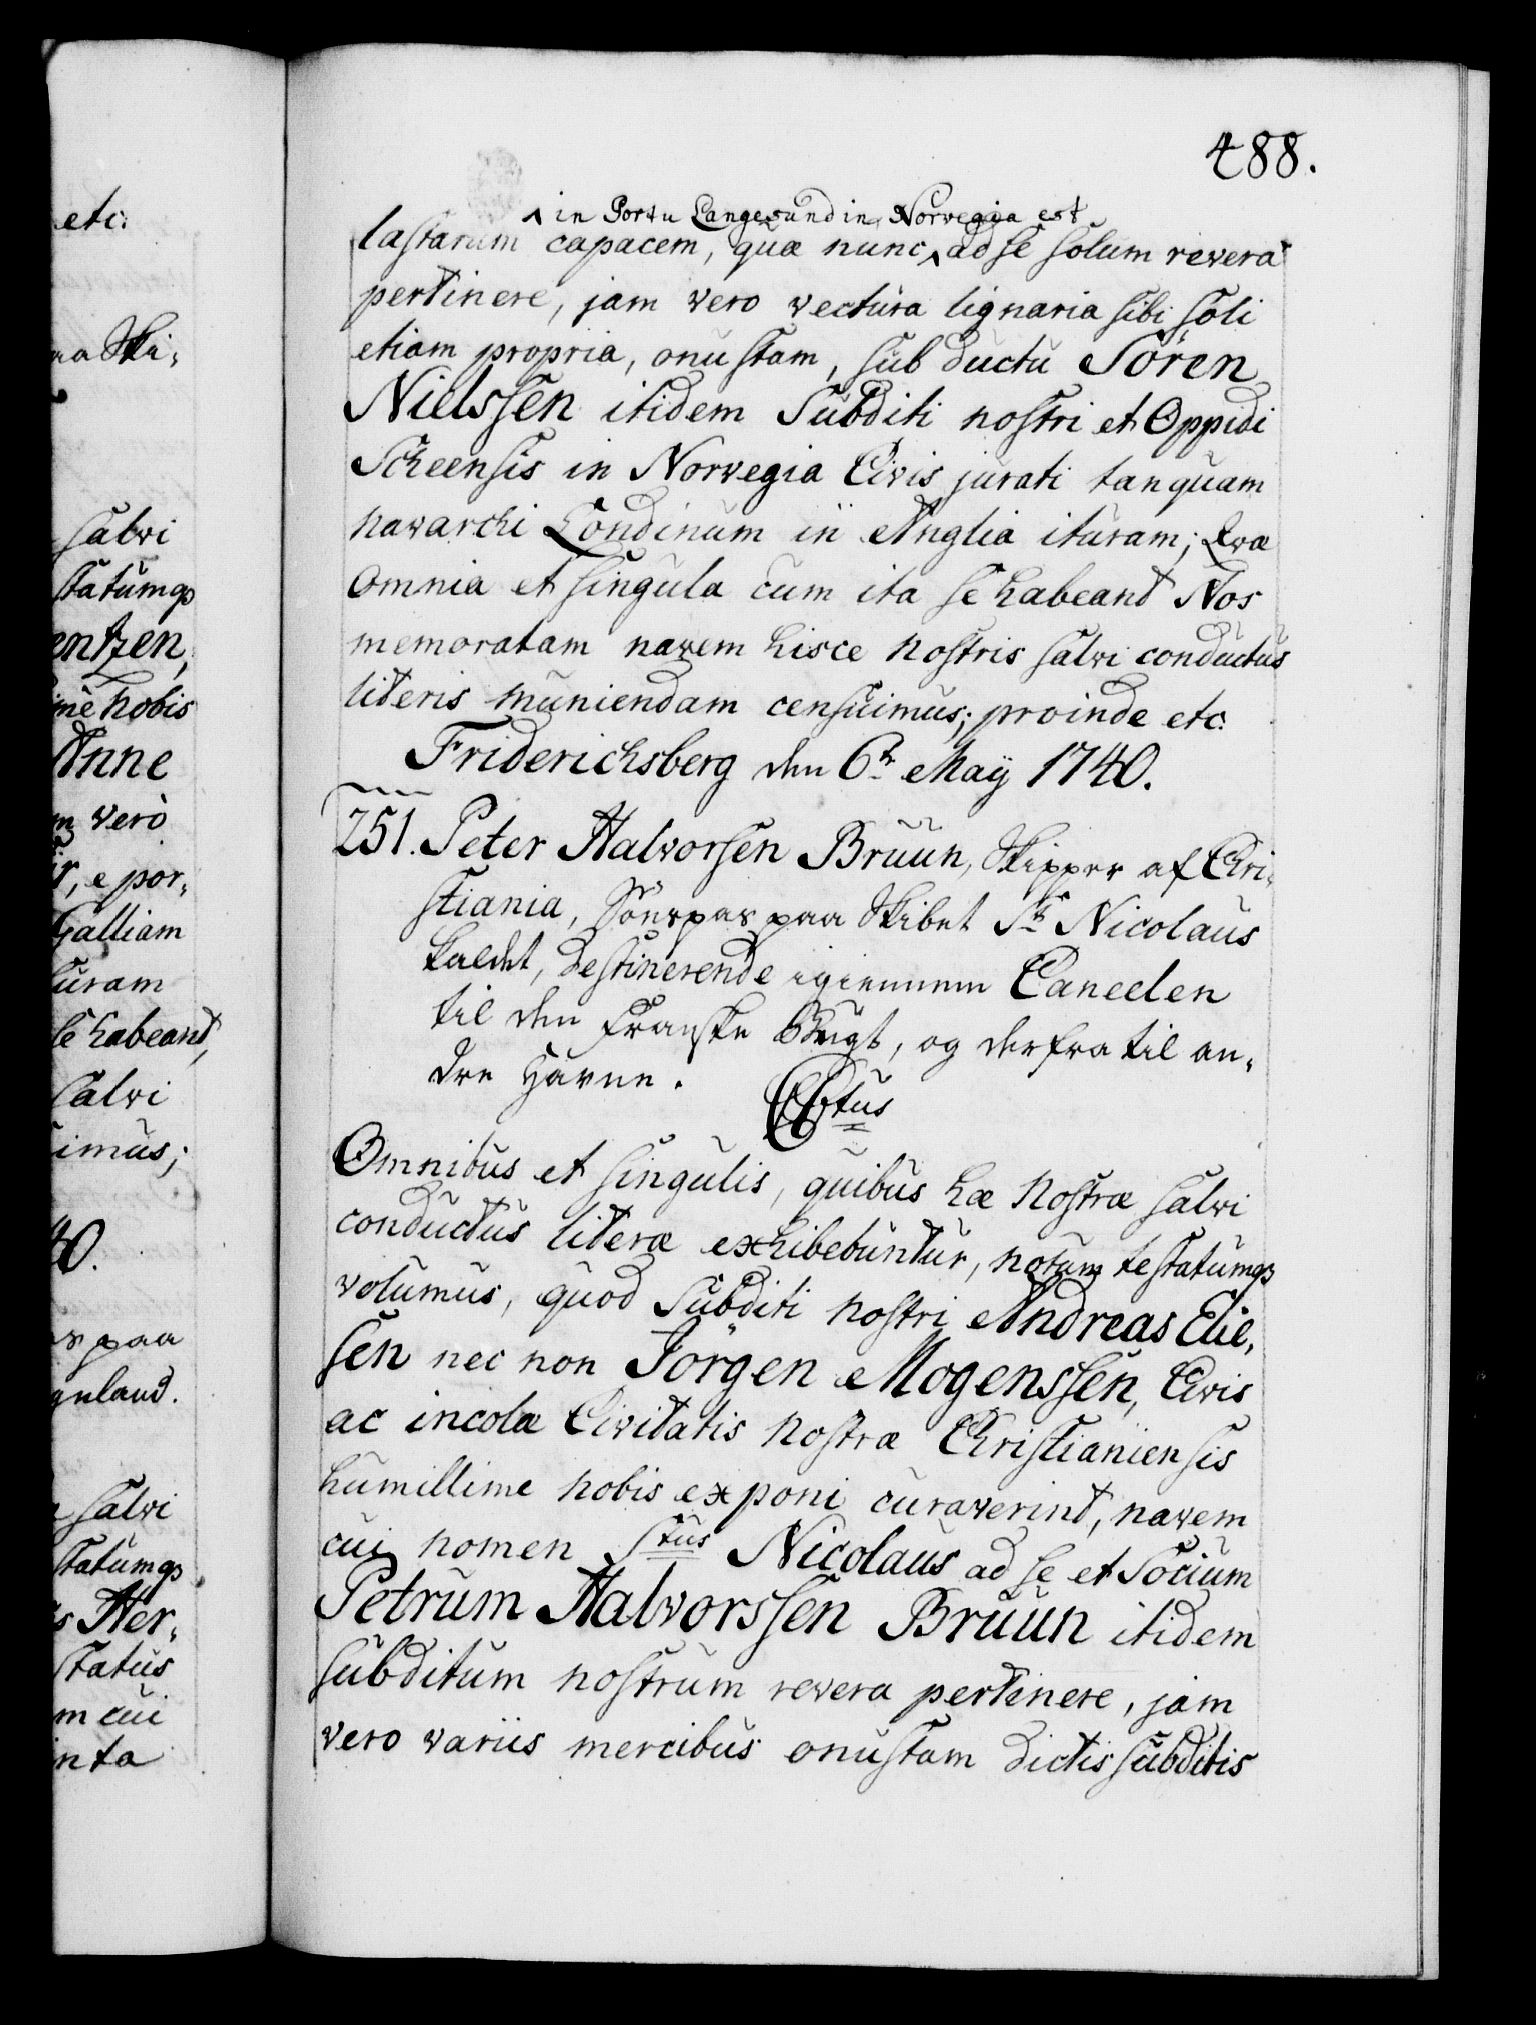 488.
etc:
na Ski,
salvi
statumqs
entzen,
imè nobis
Anne
m verò
, e por,
Galliam
turam
se habeant,
salvi
imus;
40.
paa
gnland.
salvi
statumqs
s Her,
status
m cui
nta
^ in Portu Langesund in Norvegia est
lastarum capacem, quæ nunc ^ ad se solum revera
pertinere, jam vero vectura lignaria sibi soli
etiam propria, onustam, sub ductu Sören
Nielssen itidem Subditi nostri et Oppidi
Scheensis in Norvegia Civis jurati tanquam
navarchi Londinum in Anglia ituram; Qvæ
omnia et singula cum ita se habeant Nos
memoratam navem hisce nostris salvi conductus
literis muniendam censuimus; proinde etc.
Friderichsberg den 6t. May 1740.
251. Peter Halvorsen Bruun, Skipper af Chri,
stiania, Söepas paa Skibet St. Nicolaus
kaldet, destinerende igiennem Caneelen
til den Franske Bugt, og derfra til an,
dre Havne.
CCtus
Omnibus et singulis, quibus hæ nostræ salvi
conductus literæ exhibebuntur, notum testatumqs
volumus, quod Subditi nostri Andreas Elie,
sen nec non Jörgen Mogenssen, Civis
ac incolæ Civitatis nostræ Christianiensis
humillime nobis exponi curaverint, navem
cui nomen Stus Nicolaus ad se et Socium
Petrum Halvorssen Bruun itidem
subditum nostrum revera pertinere, jam
vero variis mercibus onustam dictis subditis